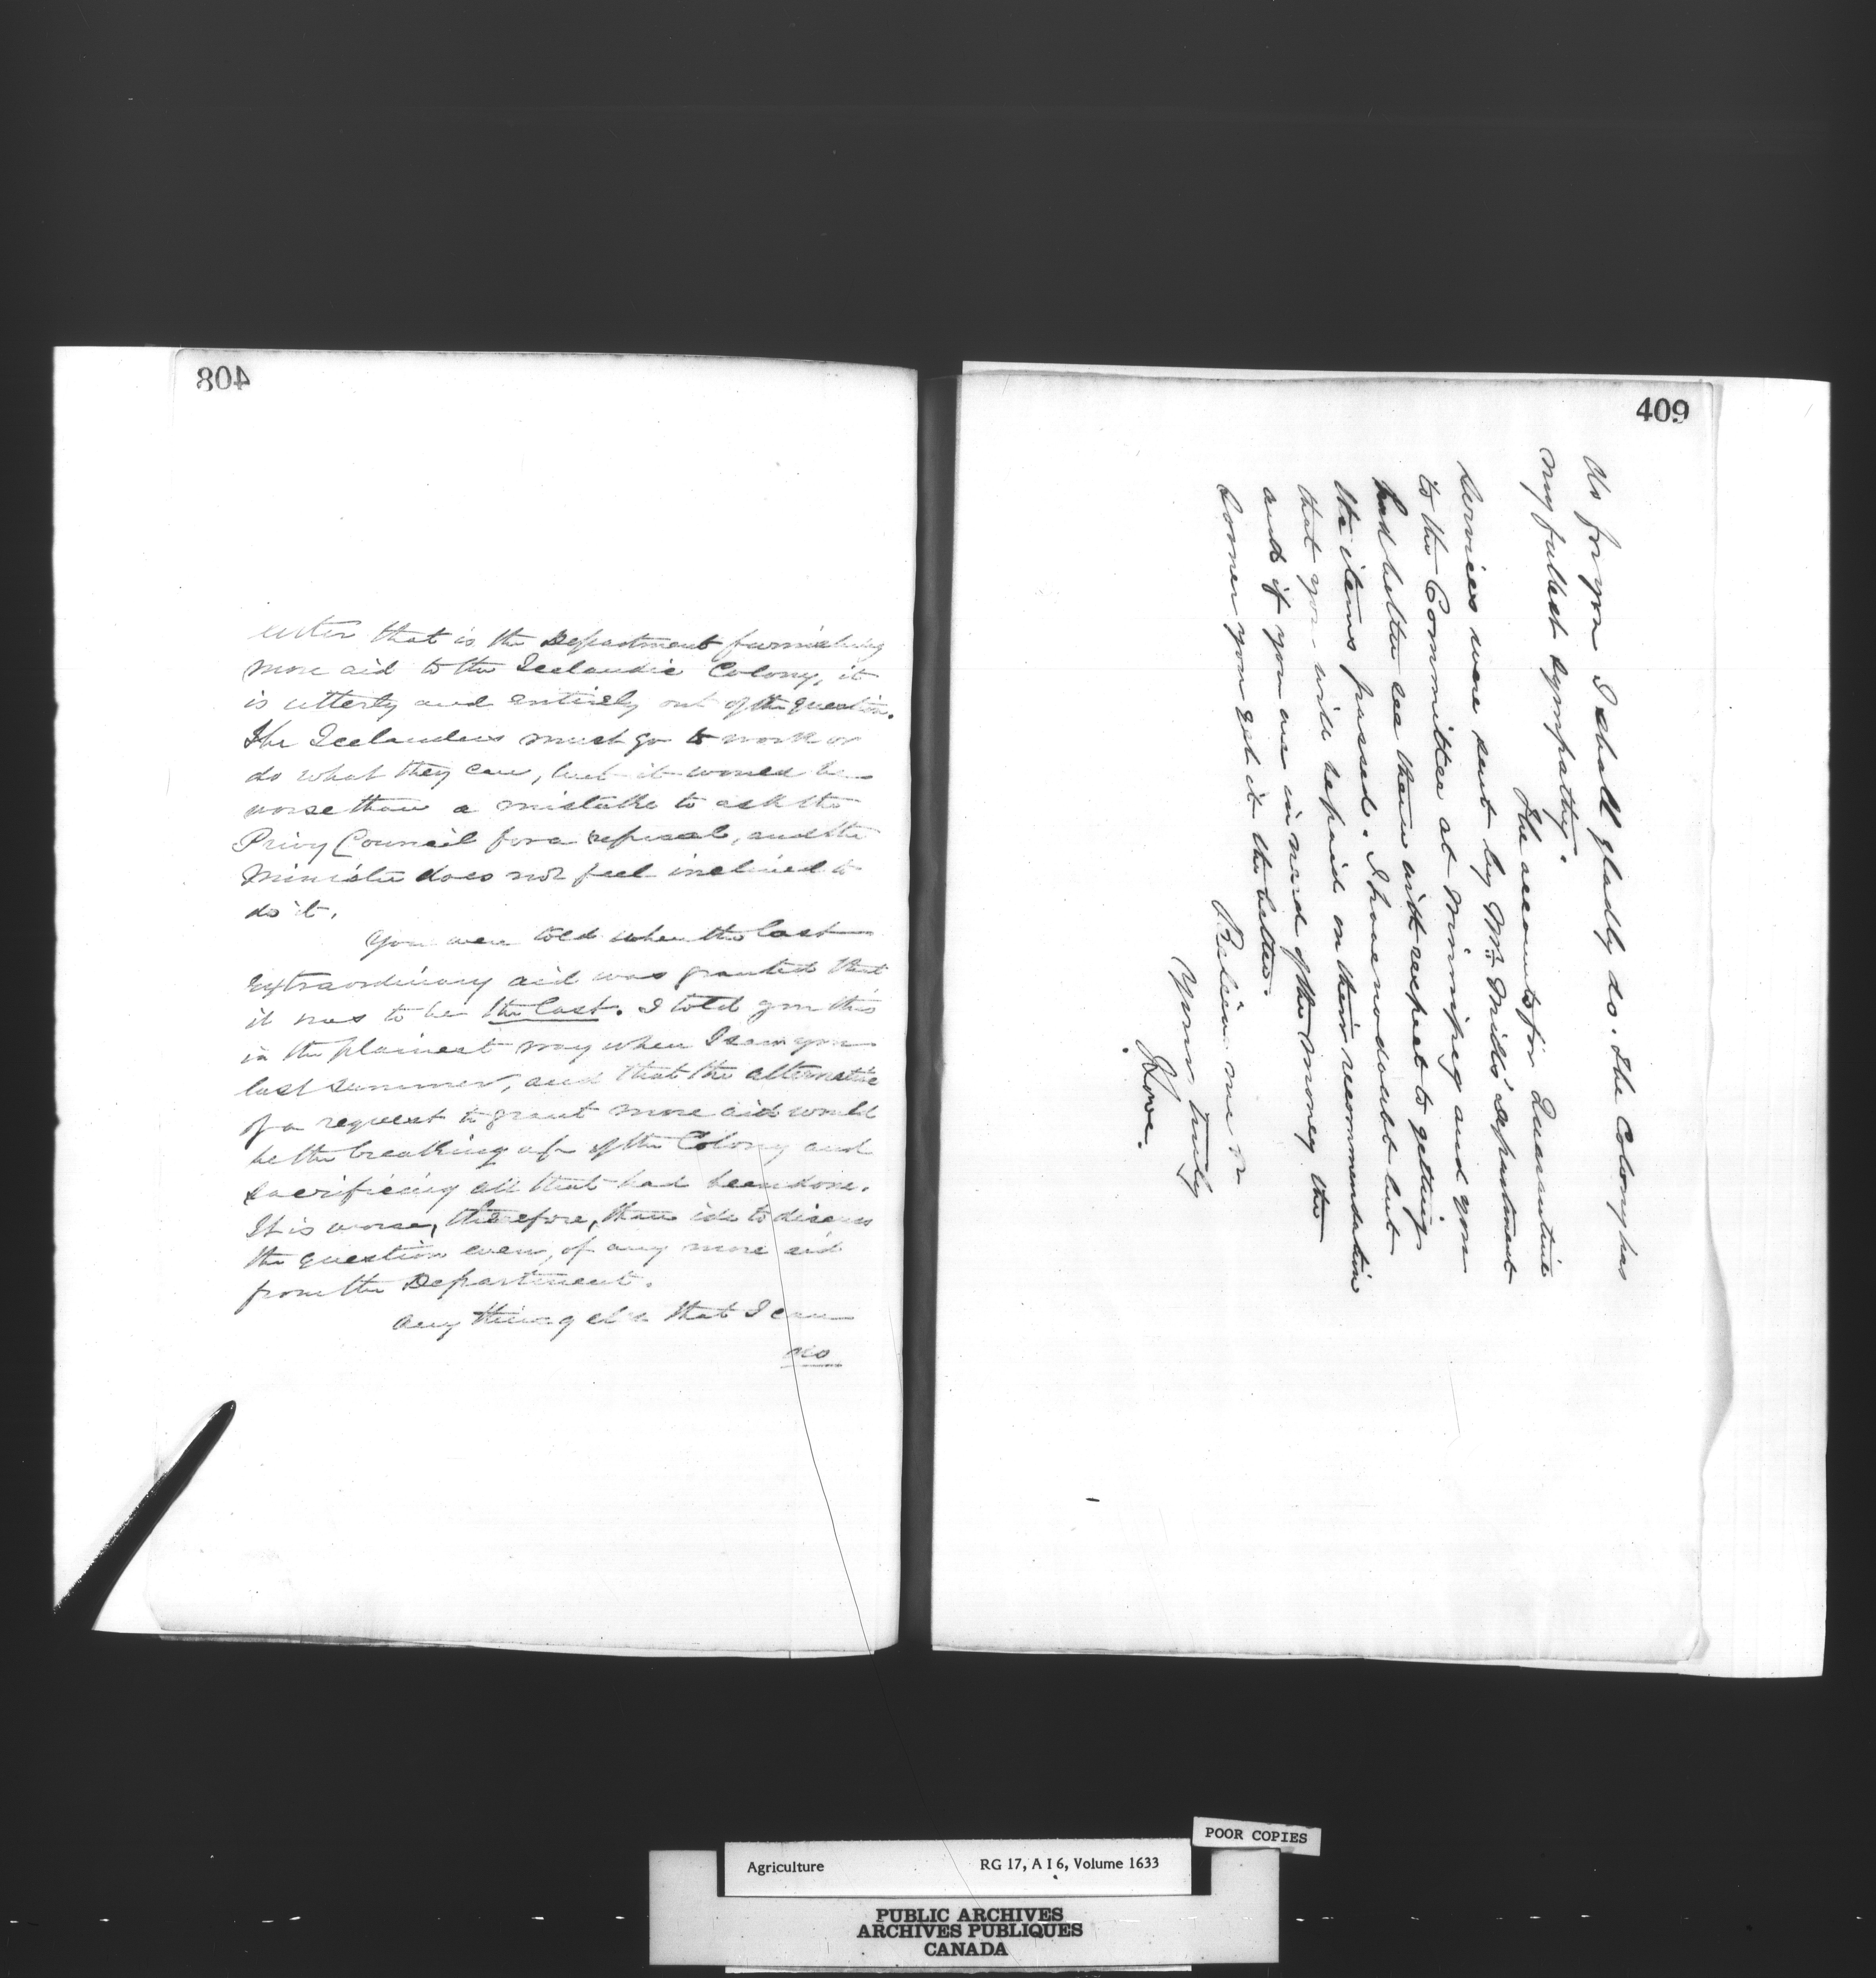 408
letter that is the Department furnishing
more aid to the Icelandic Colony, it
is utterly and entirely out of the question.
The Icelanders must go to work or
do what they can, but it would be
worse than a mistake to ask the
Privy Council for a refusal, and the
Minister does not feel inclined to
do it.
You were told when the last
extraordinary aid was granted that
it was to be the last. I told you this
in the plainest way when I saw you
last summer, and that the alternative
of a request to grant more aid would
be the breaking up of the Colony and
sacrificing all that had been done.
It is worse, therefore, than idle to discuss
the question even, of any more aid
from the Department.
Any thing else that I can
409
do for you I shall gladly do. The Colony has
my fullest sympathy.
The accounts for Quarantine
services were sent by Mr. Mills' Department
to the Committee at Winnipeg and you
had better see them with respect to getting
the items passed. I have no doubt but
that you will be paid on their recommendation
and if you are in need of the money the
sooner you get it the better.
Believe me
Yours truly
J Lowe.
POOR COPIES
Agriculture RG 17, A I 6, Volume 1633
PUBLIC ARCHIVES
ARCHIVES PUBLIQUES
CANADA